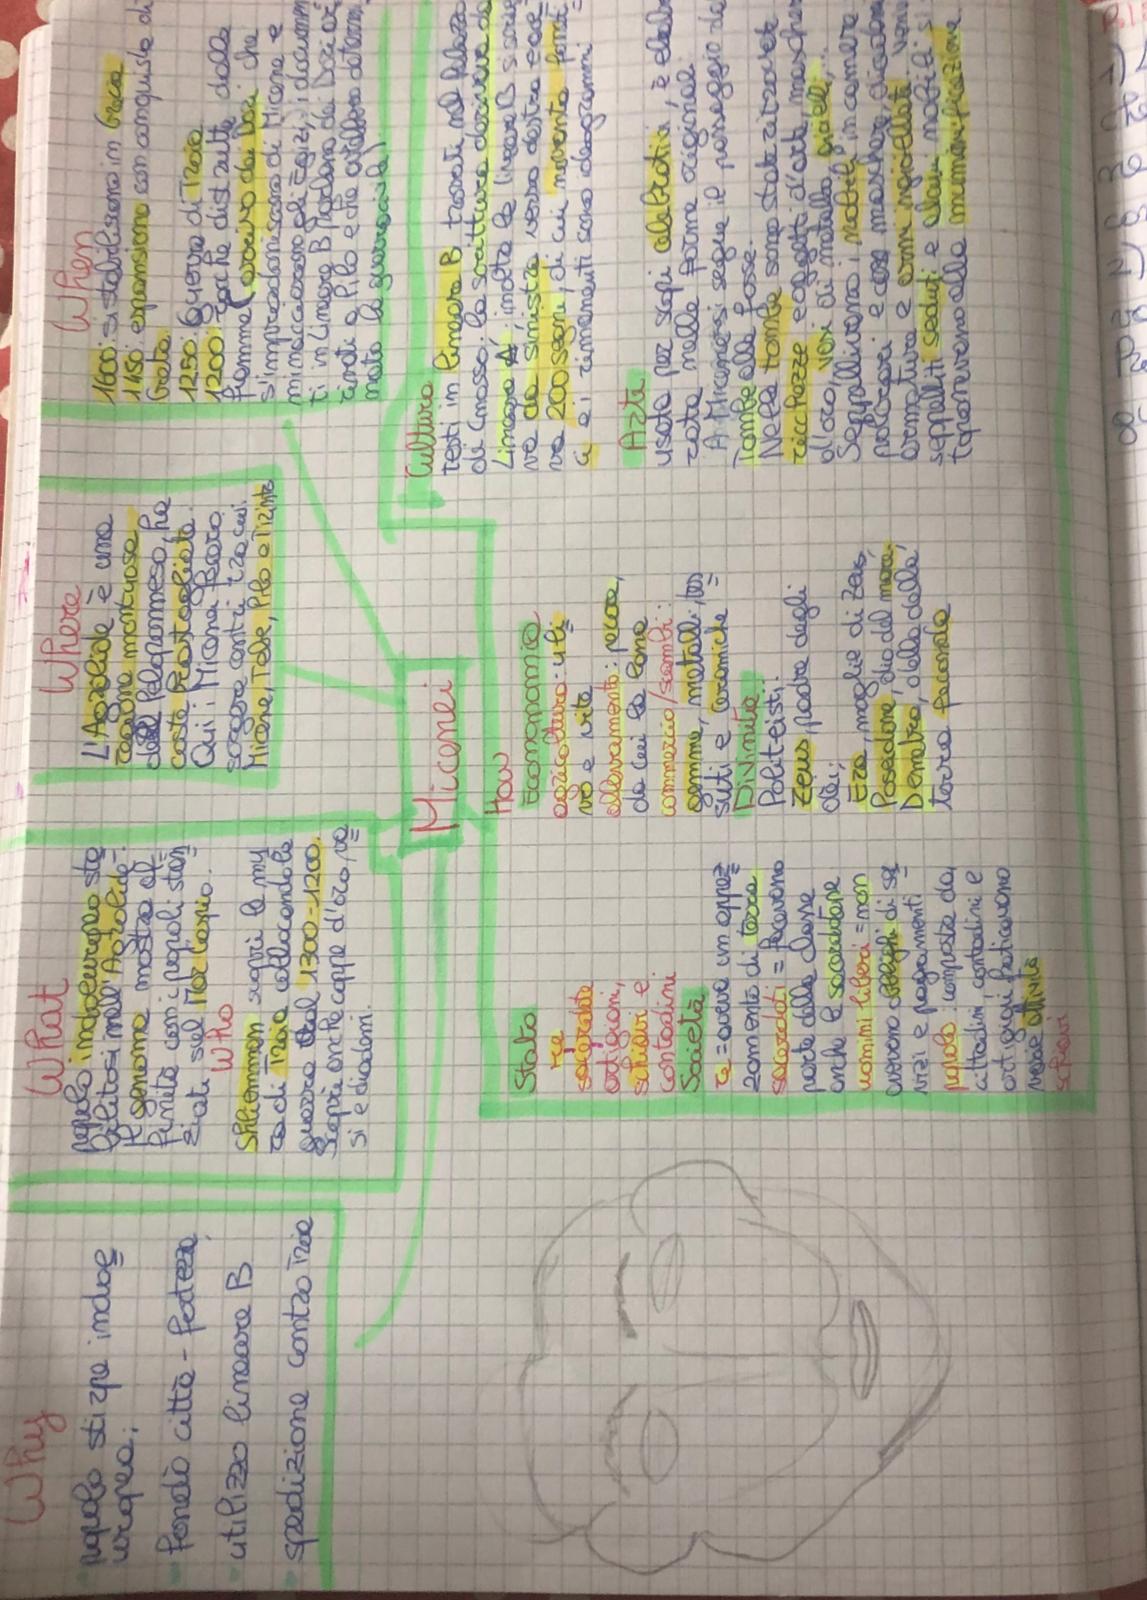 Why
popolo stirpe indoe
uropea;
fondò città - fortezza,
utilizzo lineare B
spedizione contro Troia
What
popolo indoeuropeo sta
bilitosi nell'Argolide.
Il genoma mostra af
finità con i popoli stan
ziati sul Mar Caspio.
Who
Shliemmen scoprì le mu
ra di Troia collocandola
guerra 1300-1200.
Scoprì anche coppe d'oro, va
si e diademi.
Where
L'Argolide è una
regione montuosa
del Peloponneso, ha
coste frastagliate.
Qui i Micenei
sorgere centri tra cui:
Micene, Tebe, Pilo e Tirinto
When
1600: si stabiliscono in Grecia
1450: espansione con conquista di
Creta
1250: Guerra di Troia
1200: rocche distrutte dalle
fiamme (arrivo dei Dori che
s'impadroniscono di Micene e
minacciarono gli Egizi, i documen
ti in Lineare B parlano dei Dori ar
rivati a Pilo e che avrebbero determi
nato la guerra civile)
Micenei
How
Stato
re
sacerdote
artigiani,
schiavi e
contadini
Società
re = aveva un appez
zamento di terra
sacerdoti = facevano
parte della classe
anche le sacerdotesse
uomini liberi = non
avevano obblighi di se
rvizi e pagamenti
popolo: composto da
cittadini contadini e
artigiani praticavano
varie attività
schiavi
Economomia
agricoltura: uli
vo e vite
allevamento: pecore,
da cui la lana
commercio/scambi:
gemme, metalli, tes
suti e ceramiche
Divinità:
Politeisti:
Zeus, padre degli
dei;
Era, moglie di Zeus,
Poseidone, dio del mare,
Demetra, della
terra feconda
Cultura
testi in lineare B trovati nel Palazzo
di Cnosso. La scrittura derivava da
Lineare A; inoltre la lineare B si scrive
va da sinistra verso destra e ave
va 200 segni, di cui novanta foneti
ci e i rimanenti sono ideogrammi
Arte
usata per scopi celebrativi, è elabo
rata nelle forme originali.
Ai Micenei si segue il passaggio da
Tombe alle fosse.
Nelle tombe sono state ritrovate
ricchezze e oggetti d'arte, maschere
d'oro, vasi di metallo, gioielli,
Seppellivano i nobili in camere
armatura e armi ingioiellate
seppelliti seduti e alcuni nobili si
sottoponevano alla mummificazione